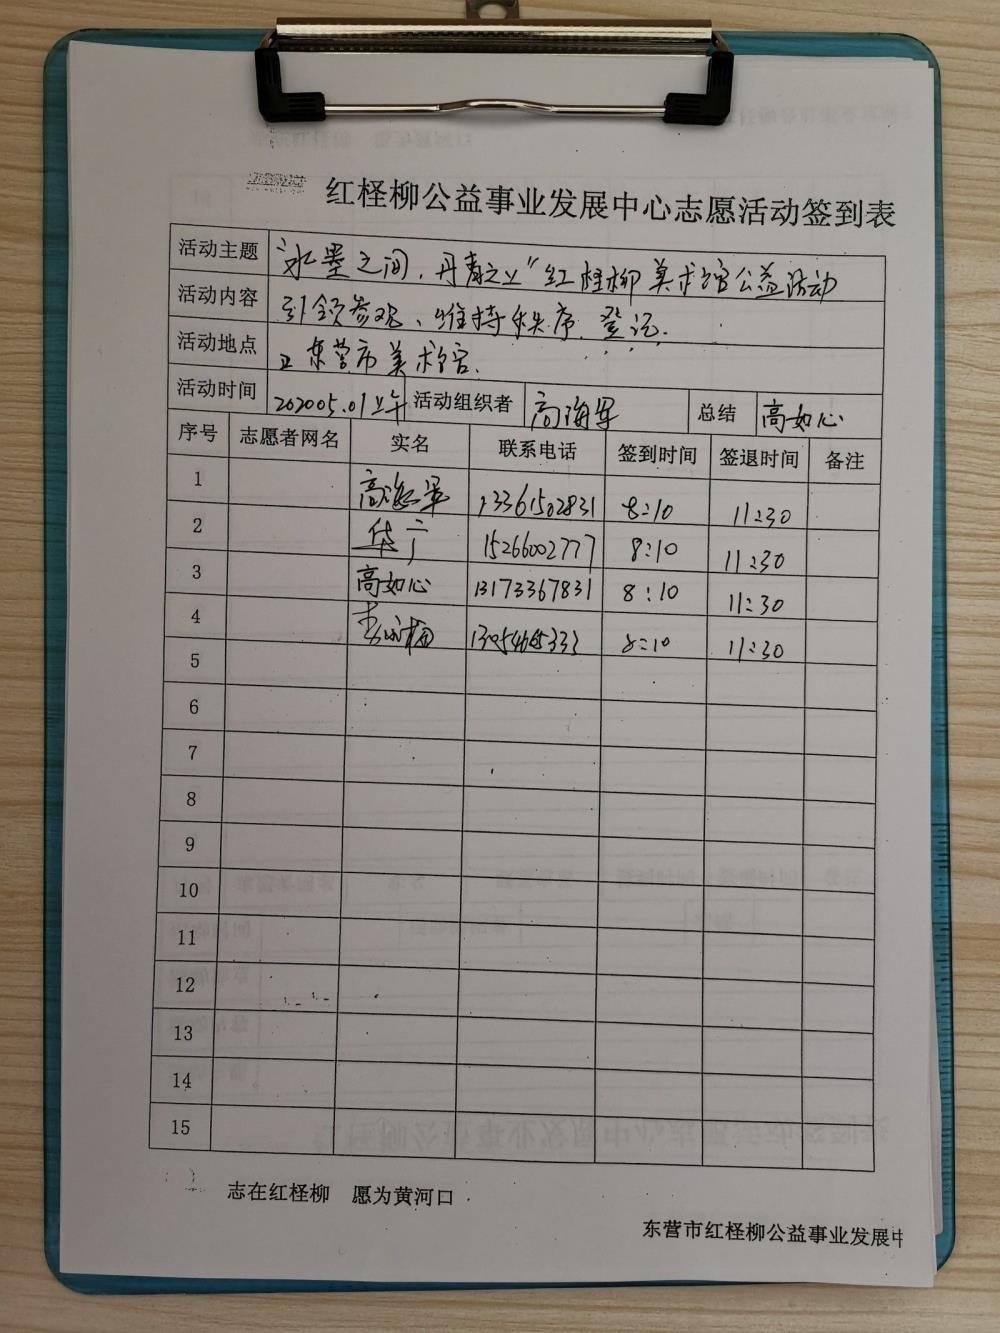 红柽柳公益事业发展中心志愿活动签到表
活动主题 "水墨之间,丹青之上"红柽柳美术馆公益活动
活动内容 引领参观、维持秩序、登记.
活动地点 东营市美术馆.
活动时间 202005.01上午 活动组织者 高海军 总结 高如心
序号 志愿者网名 实名 联系电话 签到时间 签退时间 备注
1 高海军 13361502831 8:10 11:30
2 华广 15266002777 8:10 11:30
3 高如心 13173367831 8:10 11:30
4 8:10 11:30
5
6
7
8
9
10
11
12
13
14
15
志在红柽柳 愿为黄河口
东营市红柽柳公益事业发展中